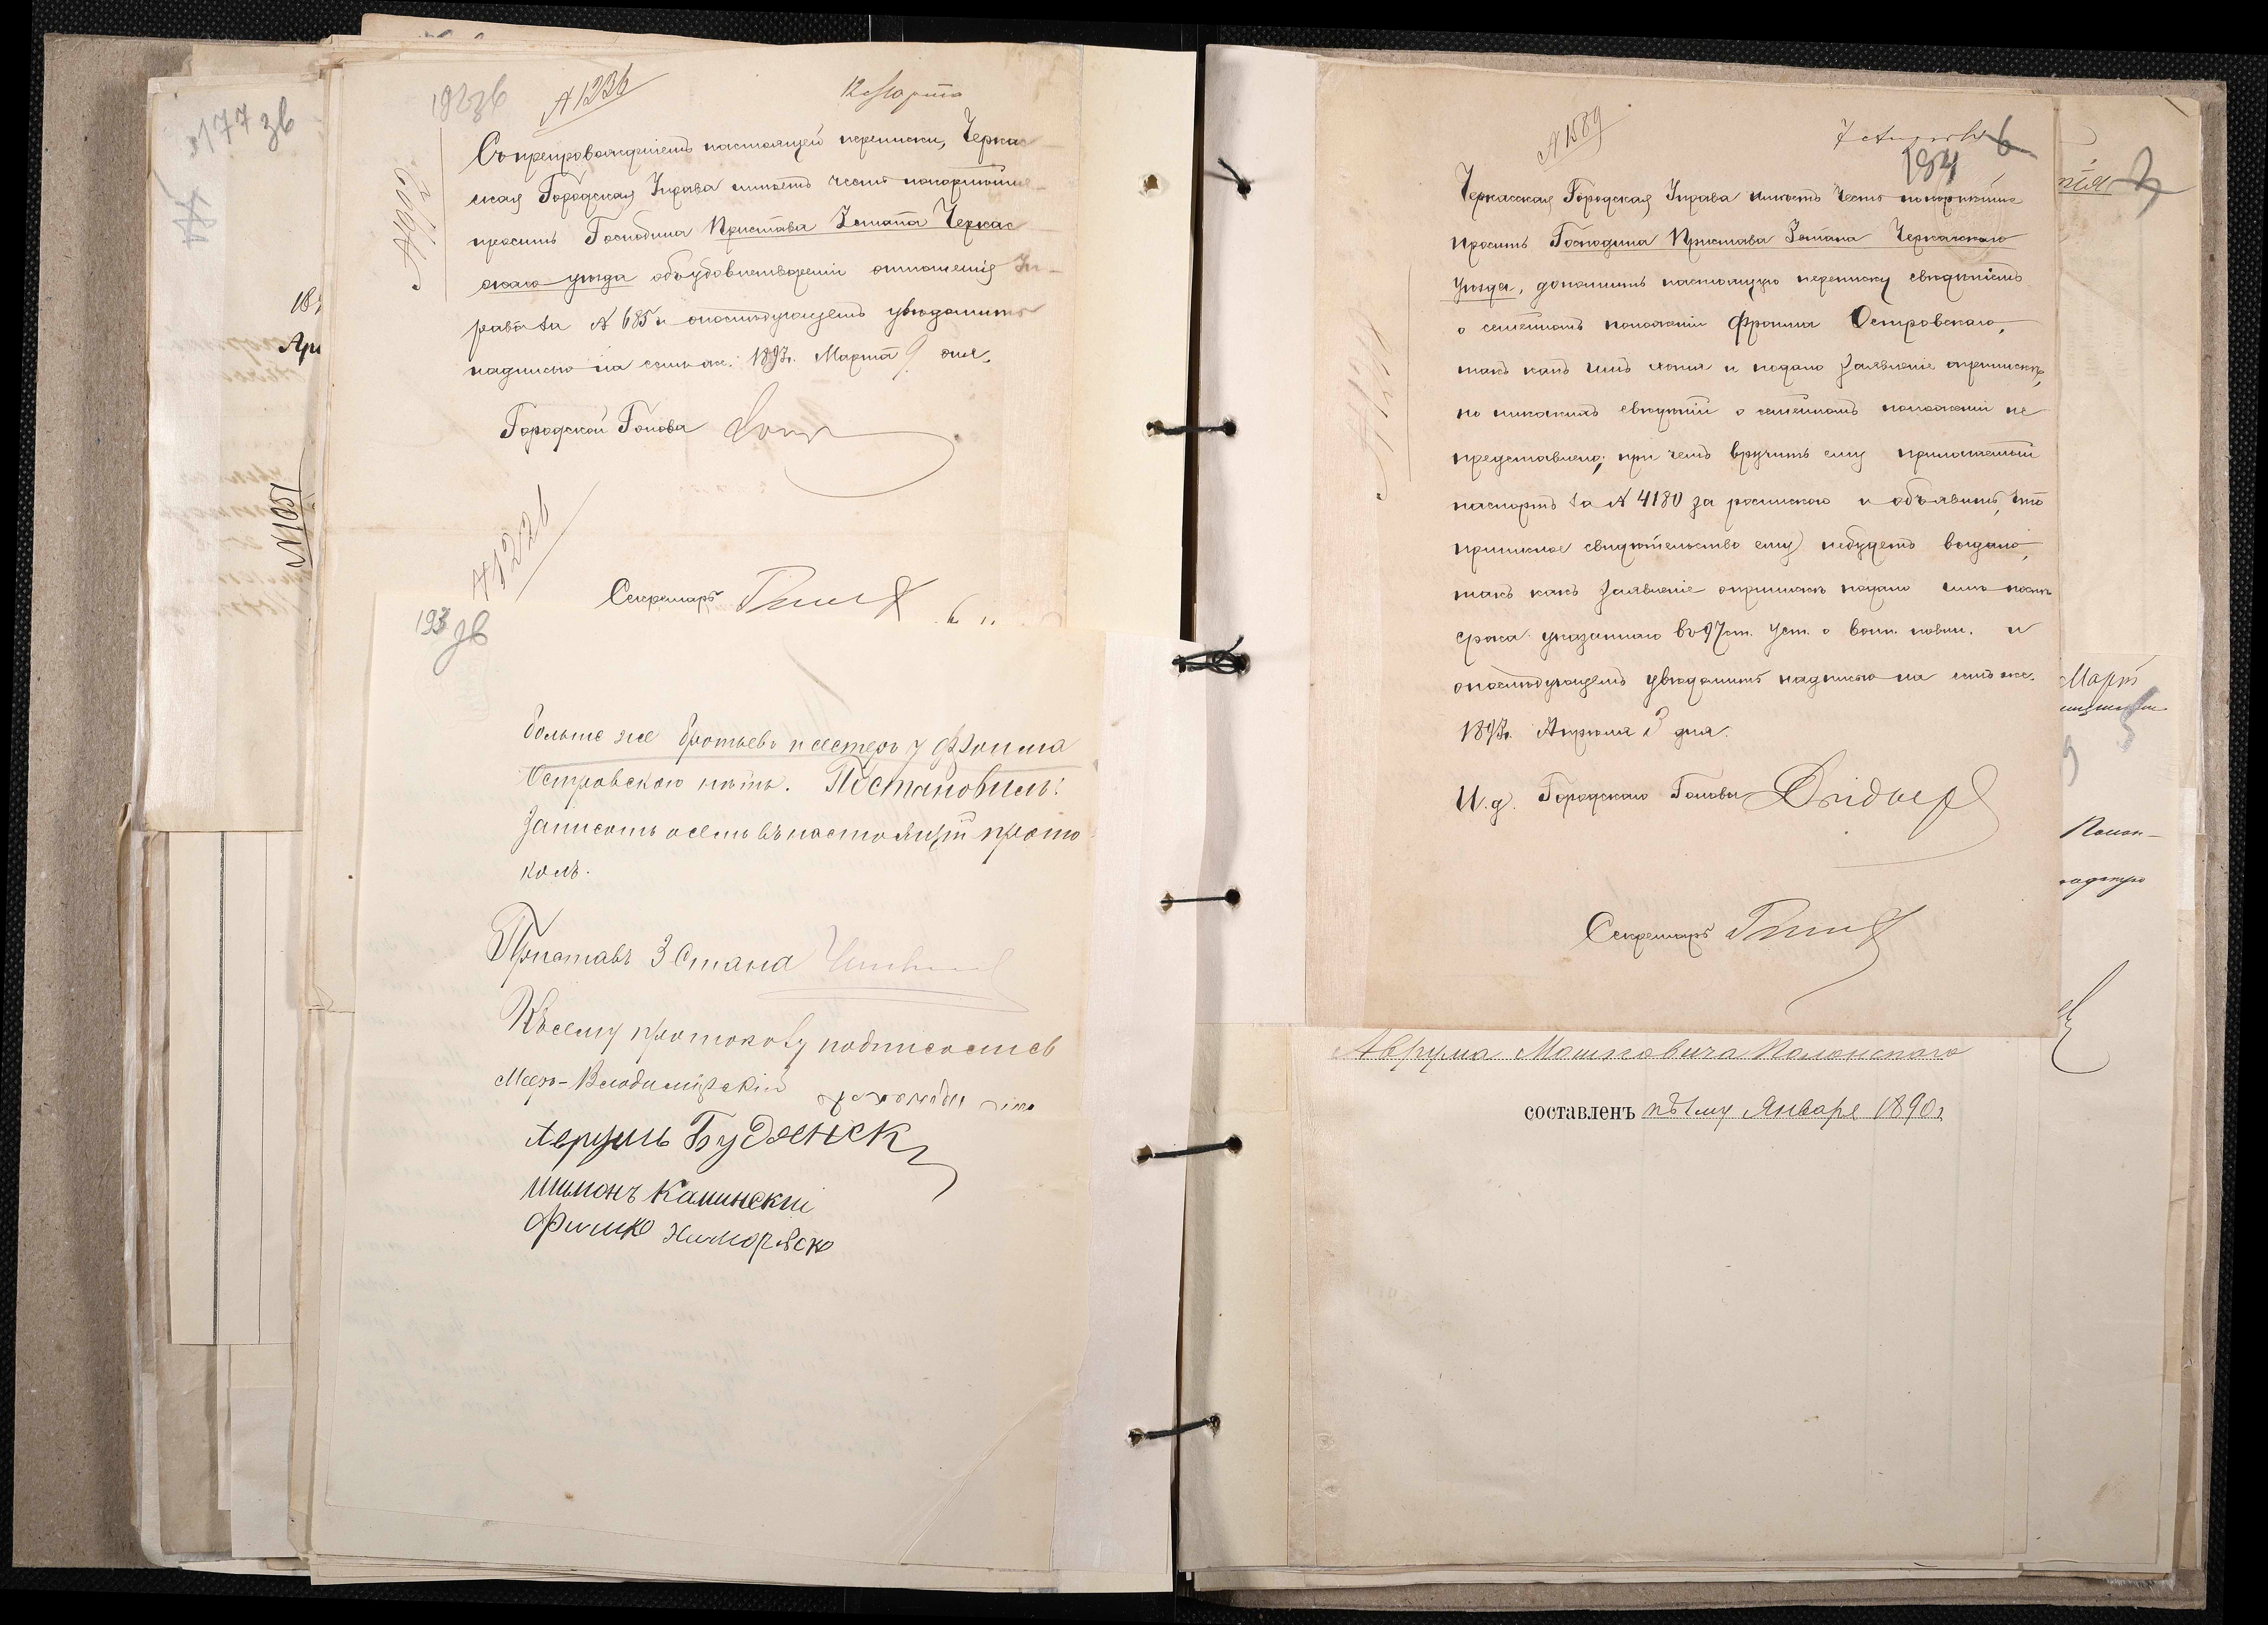 177 зв
№ 1051
192 зв
№ 1236
12 Марта
Съ препровожденіемъ настоящей переписки, Черкас
ская Городская Управа имѣетъ честь покорнѣйше
просить Господина Пристава 3 стана Черкас
скаго уѣзда объ удовлетвореніи отношенія Уп
равы за № 685 и о послѣдующемъ увѣдомить
надписью на семъ же. 1897 г. Марта 9 дня.
Городской Голова
№ 1226
Секретарь
193 зв
больше же братьевъ и сестеръ у Фроима
Островскаго нѣтъ. Постановилъ:
записать о семъ въ настоящій прото
колъ.
Приставъ 3 Стана
Къ сему протоколу подписались
Меер-Володимірскій
Аврумъ Будянск
Шимонъ Каминскій
№ 1589
7 Апрѣля 6
194
Черкасская Городская Управа имѣетъ честь покорнѣйше
просить Господина Пристава 3 стана Черкасскаго
уѣзда, дополнить настоящую переписку свѣдѣніемъ
о семейномъ положеніи Фроима Островскаго,
такъ какъ имъ хотя и подано заявленіе о припискѣ,
но никакихъ свѣдѣній о семейномъ положеніи не
представлено; при чемъ вручить ему прилагаемый
паспортъ за № 4180 за роспискою и объявить, что
приписное свидѣтельство ему не будетъ выдано,
такъ какъ заявленіе о припискѣ подано имъ послѣ
срока указаннаго въ 97 ст. Уст. о воин. повин. и
о послѣдующемъ увѣдомить надписью на семъ же.
1897 г. Апрѣля 3 дня.
И. д. Городскаго Головы
Секретарь
Аврума Мошковича Полонскаго
составленъ къ 1му Января 1890 г.
Март